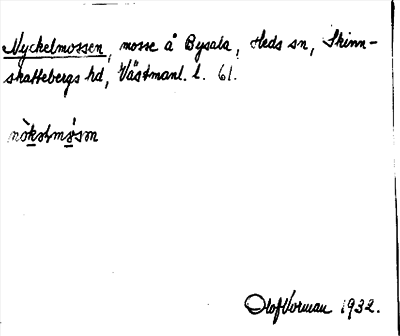 Nyckelmossen, mosse å Bysala, Heds sn, Skinn-
skattebergs hd, Västmanl. l. 61.
Olof Vorman 1932.